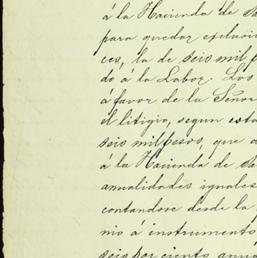 á la Hacienda de
para quedar
ces, la de seis mil
do á la Labor. Los
á favor de la Señor
el litigio, segun esta
seis mil pesos, que
á la Hacienda de
anualidades iguales
contandose desde la
mio á instrumento
seis por ciento anua